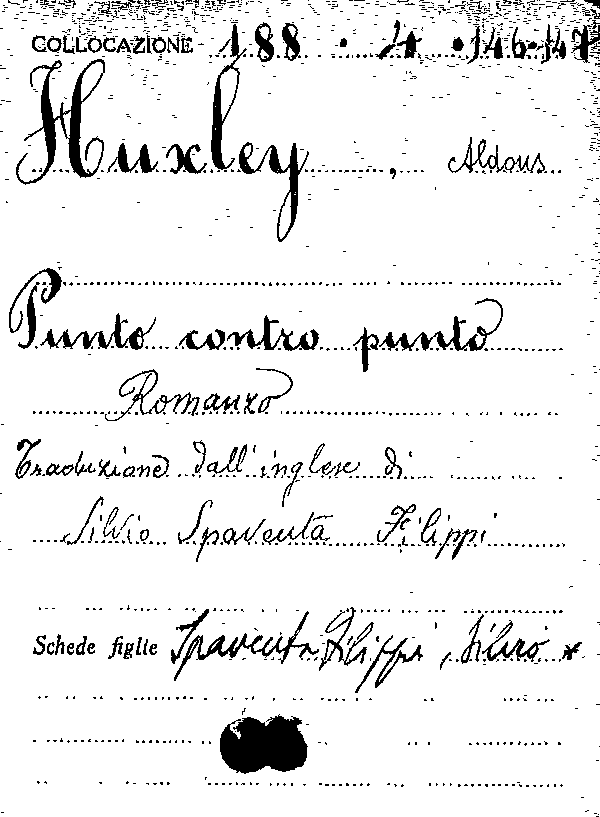 COLLOCAZIONE 188 . 4 . 146-147
Huxley , Aldous
Punto contro punto
Romanzo
Traduzione dall'inglese di
Silvio Spaventa Filippi
Schede figlie Spaventa Filippi, Silvio *